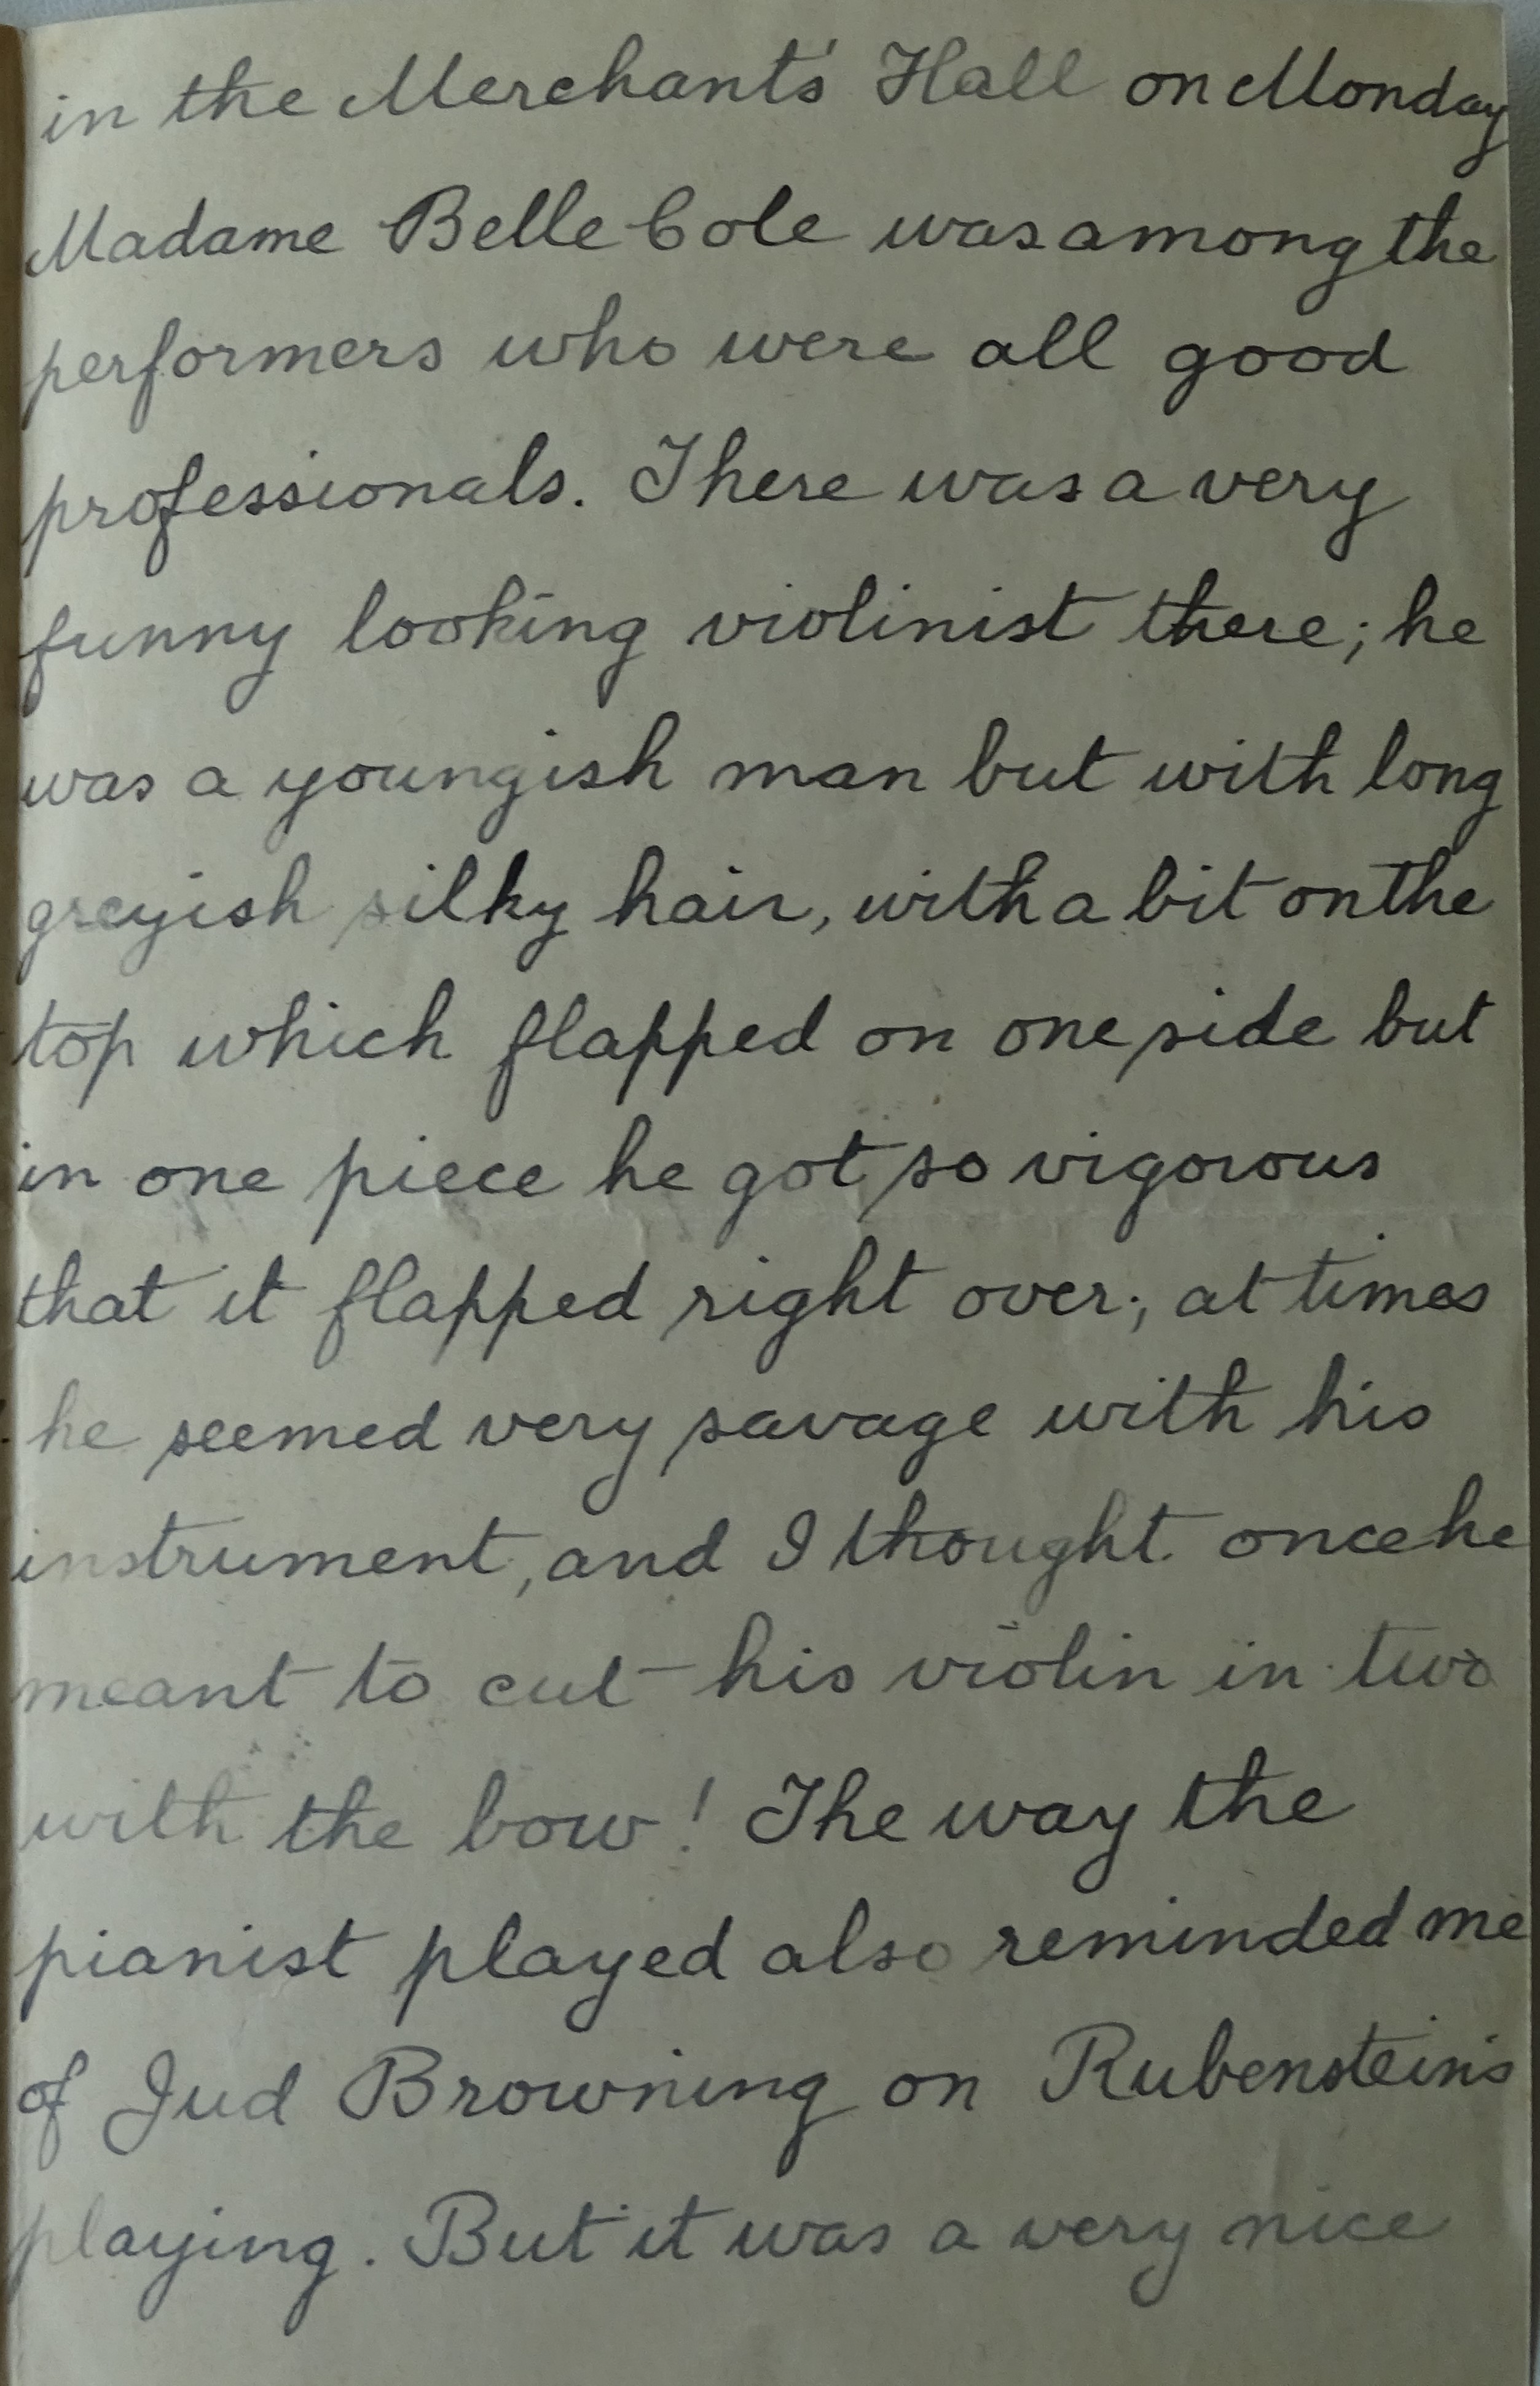 in the Merchants' Hall on Monday
Madame Belle Cole was among the
performers who were all good
professionals. There was a very
funny looking violinist there; he
was a youngish man but with long
greyish silky hair, with a bit on the
top which flapped on one side but
in one piece he got so vigorous
that it flapped right over; at times
he seemed very savage with his
instrument, and I thought once he
meant to cut his violin in two
with the bow! The way the
pianist played also reminded me
of Jud Browning on Rubenstein's
playing. But it was a very nice